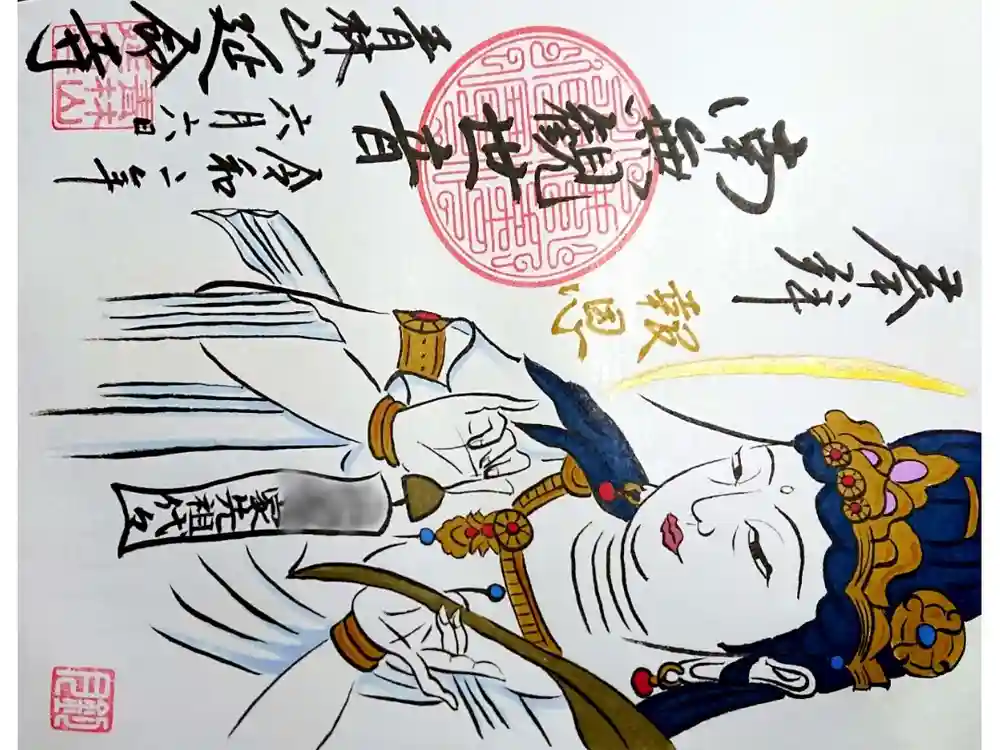 奉拝
報恩
南無観世音
令和二年
六月六日
青林山延命寺
家先祖代々